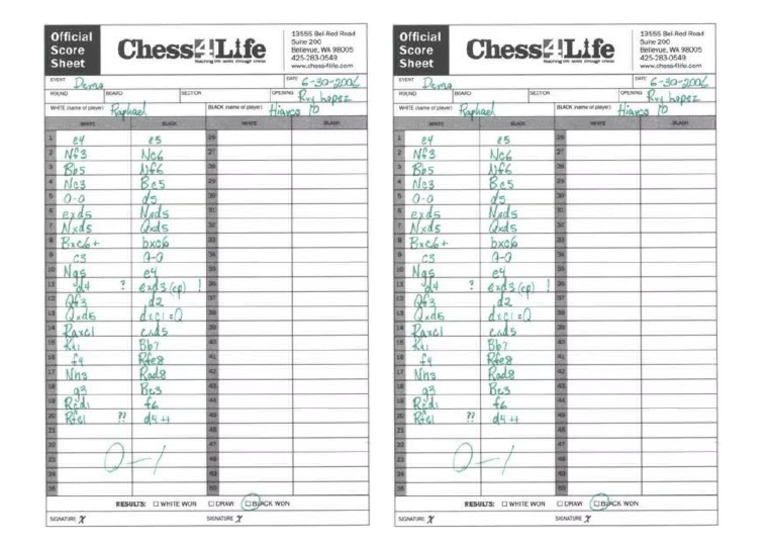 Official
Score
Sheet
Chess4Life
13555 Bel-Red Road
Suite 200
Bellevue, WA 98005
425-283-0549
www.chess4life.com
EVENT Demo
DATE 6-30-2006
ROUND BOARD SECTION OPENING Ruy Lopez
WHITE (name of player) Raphael BLACK (name of player) Hiarcs 10
WHITE BLACK WHITE BLACK
1 e4 e5 26
2 Nf3 Nc6 27
3 Bb5 Nf6 28
4 Nc3 Bc5 29
5 0-0 d5 30
6 exd5 Nxd5 31
7 Nxd5 Qxd5 32
8 Bxc6+ bxc6 33
9 c3 0-0 34
10 Ng5 e4 35
11 d4 ? exd3 (ep) ! 36
12 Qf3 d2 37
13 Qxd5 dxc1=Q 38
14 Raxc1 cxd5 39
15 Bb7 40
16 f4 Rfe8 41
17 Nh3 Rad8 42
18 g3 Be3 43
19 Rcd1 f6 44
20 Rfe1 ?? d4++ 45
21 46
22 47
23 48
24 49
25 50
0-1
RESULTS: WHITE WON DRAW BLACK WON
SIGNATURE X SIGNATURE X
Official
Score
Sheet
Chess4Life
13555 Bel-Red Road
Suite 200
Bellevue, WA 98005
425-283-0549
www.chess4life.com
EVENT Demo
DATE 6-30-2006
ROUND BOARD SECTION OPENING Ruy Lopez
WHITE (name of player) Raphael BLACK (name of player) Hiarcs 10
WHITE BLACK WHITE BLACK
1 e4 e5 26
2 Nf3 Nc6 27
3 Bb5 Nf6 28
4 Nc3 Bc5 29
5 0-0 d5 30
6 exd5 Nxd5 31
7 Nxd5 Qxd5 32
8 Bxc6+ bxc6 33
9 c3 0-0 34
10 Ng5 e4 35
11 d4 ? exd3 (ep) ! 36
12 Qf3 d2 37
13 Qxd5 dxc1=Q 38
14 Raxc1 cxd5 39
15 Bb7 40
16 f4 Rfe8 41
17 Nh3 Rad8 42
18 g3 Be3 43
19 Rcd1 f6 44
20 Rfe1 ?? d4++ 45
21 46
22 47
23 48
24 49
25 50
0-1
RESULTS: WHITE WON DRAW BLACK WON
SIGNATURE X SIGNATURE X